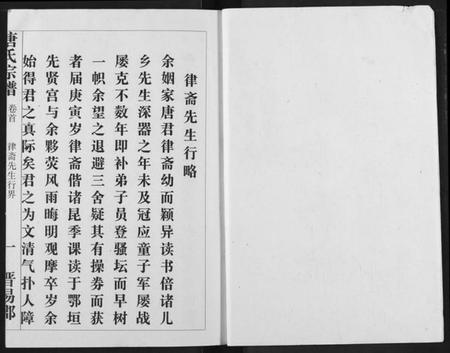 律斋先生行略
余姻家唐君律斋幼而颖异读书倍诸儿
乡先生深器之年未及冠应童子军屡战
屡克不数年即补弟子员登骚坛而早树
一帜余望之退避三舍疑其有操券而获
者届庚寅岁律斋偕诸昆季课读于鄂垣
先贤宫与余夥荧风雨晦明观摩卒岁余
始得君之真际矣君之为文清气扑人障
唐氏宗谱
卷首
律斋先生行界
一
晋易郡